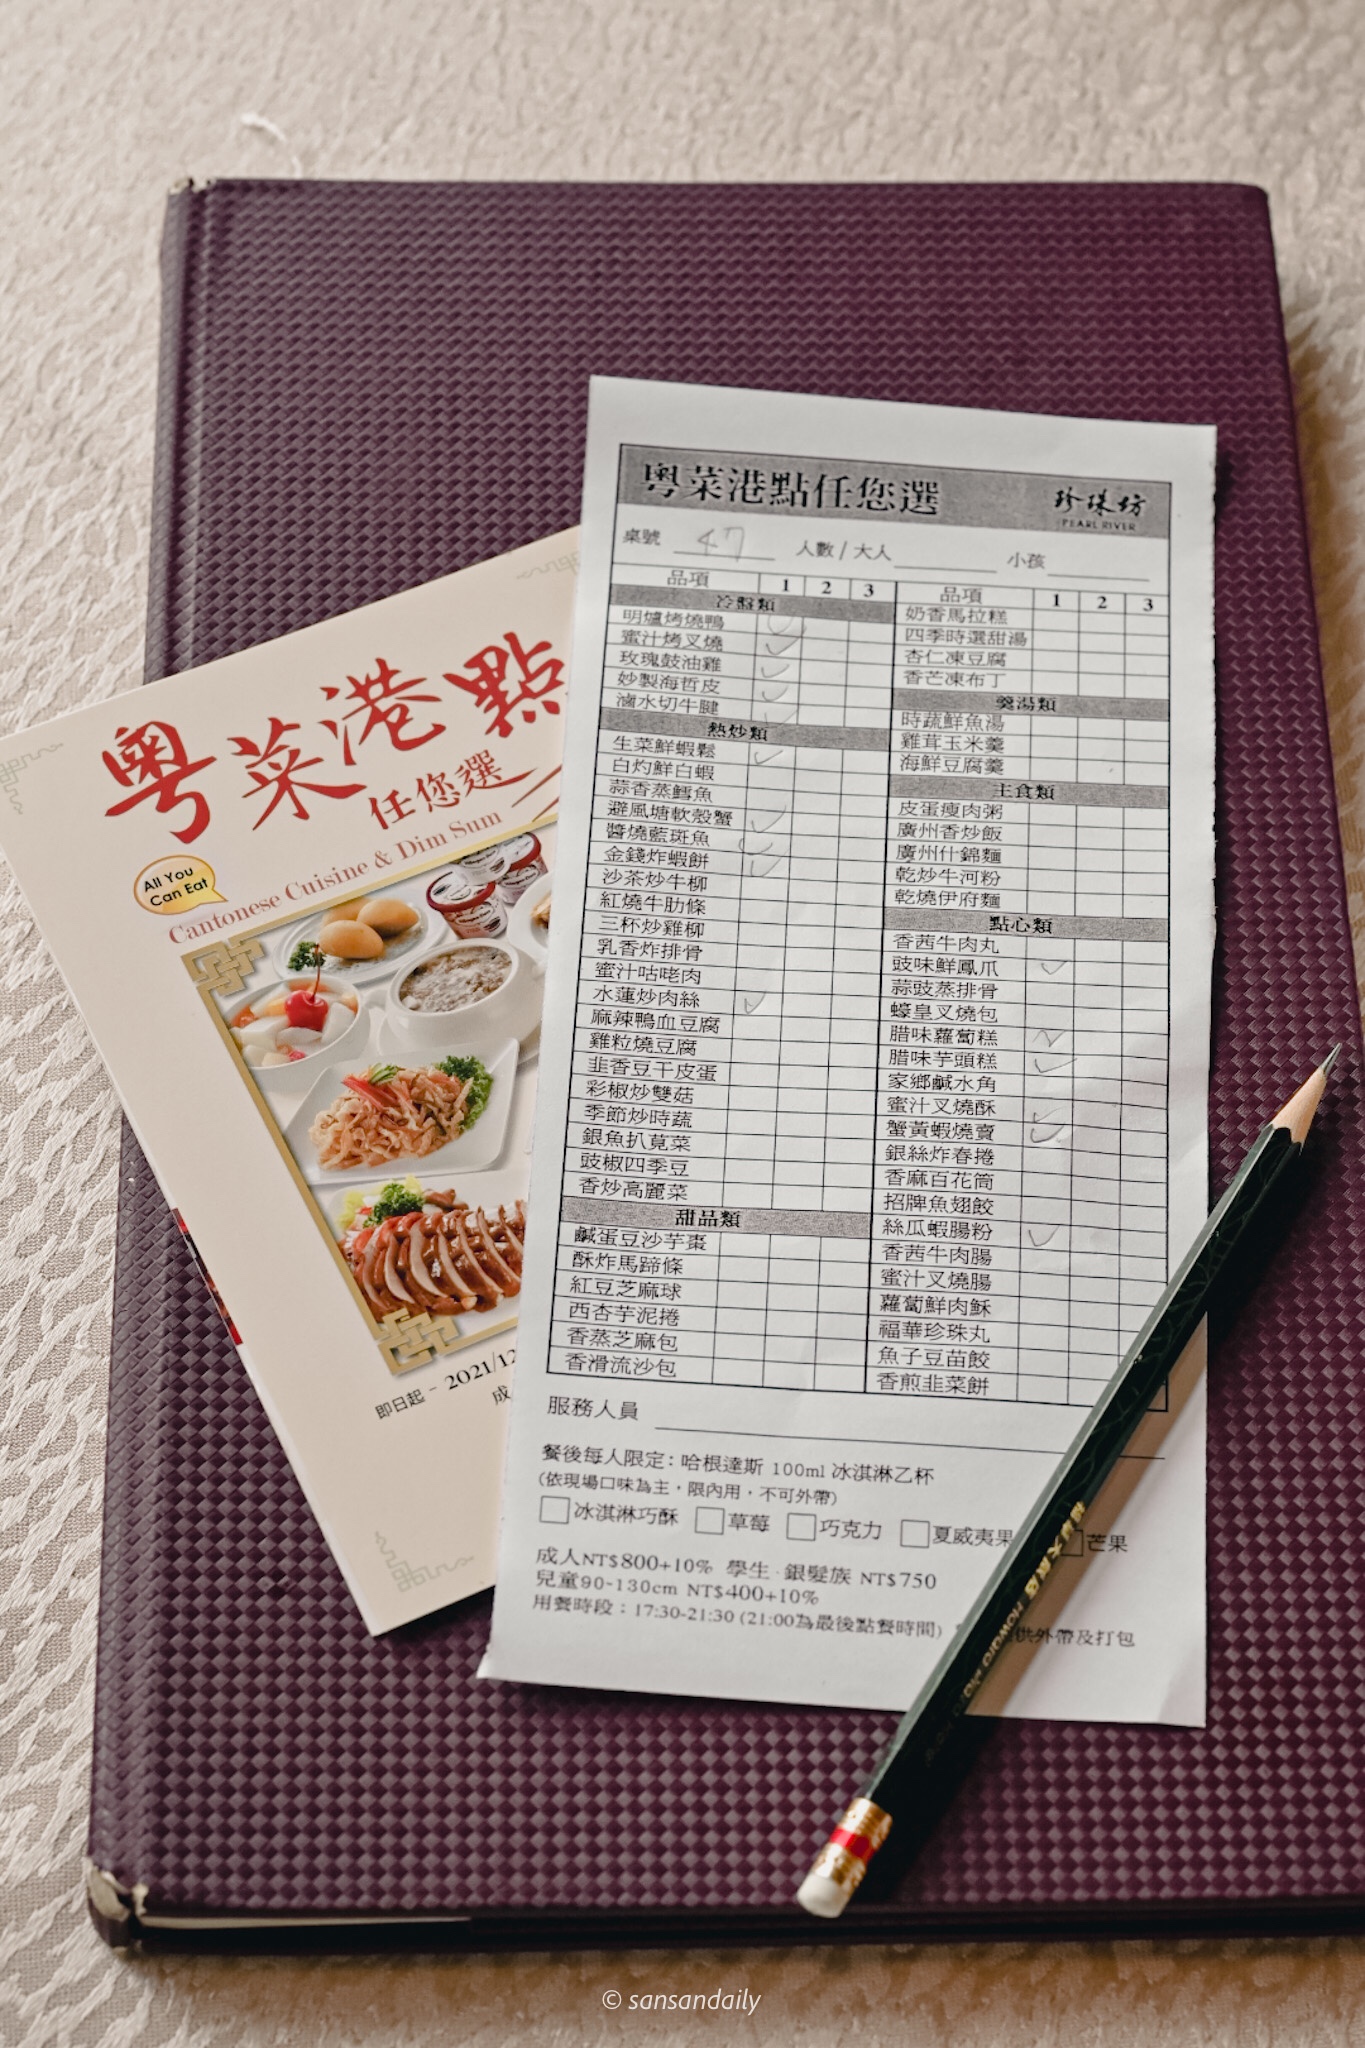 粵菜港點
任您選
All You
Can Eat
Cantonese Cuisine & Dim Sum
即日起 - 2021/12
成
粵菜港點任您選
珍珠坊
PEARL RIVER
桌號 47 人數 / 大人 小孩
品項 1 2 3
冷盤類
明爐烤燒鴨
蜜汁烤叉燒
玫瑰鼓油雞
妙製海哲皮
滷水切牛腱
熱炒類
生菜鮮蝦鬆
白灼鮮白蝦
蒜香蒸鱈魚
避風塘軟殼蟹
醬燒藍斑魚
金錢炸蝦餅
沙茶炒牛柳
紅燒牛肋條
三杯炒雞柳
乳香炸排骨
蜜汁咕咾肉
水蓮炒肉絲
麻辣鴨血豆腐
雞粒燒豆腐
韭香豆干皮蛋
彩椒炒雙菇
季節炒時蔬
銀魚扒莧菜
豉椒四季豆
香炒高麗菜
甜品類
鹹蛋豆沙芋棗
酥炸馬蹄條
紅豆芝麻球
西杏芋泥捲
香蒸芝麻包
香滑流沙包
品項 1 2 3
奶香馬拉糕
四季時選甜湯
杏仁凍豆腐
香芒凍布丁
羹湯類
時蔬鮮魚湯
雞茸玉米羹
海鮮豆腐羹
主食類
皮蛋瘦肉粥
廣州香炒飯
廣州什錦麵
乾炒牛河粉
乾燒伊府麵
點心類
香茜牛肉丸
豉味鮮鳳爪
蒜豉蒸排骨
蠔皇叉燒包
腊味蘿蔔糕
腊味芋頭糕
家鄉鹹水角
蜜汁叉燒酥
蟹黃蝦燒賣
銀絲炸春捲
香麻百花筒
招牌魚翅餃
絲瓜蝦腸粉
香茜牛肉腸
蜜汁叉燒腸
蘿蔔鮮肉酥
福華珍珠丸
魚子豆苗餃
香煎韭菜餅
服務人員
餐後每人限定: 哈根達斯 100ml 冰淇淋乙杯
(依現場口味為主，限內用，不可外帶)
冰淇淋巧酥 草莓 巧克力 夏威夷果 芒果
成人NT$800+10% 學生 · 銀髮族 NT$750
兒童90-130cm NT$400+10%
用餐時段：17:30-21:30 (21:00為最後點餐時間) 供外帶及打包
© sansandaily